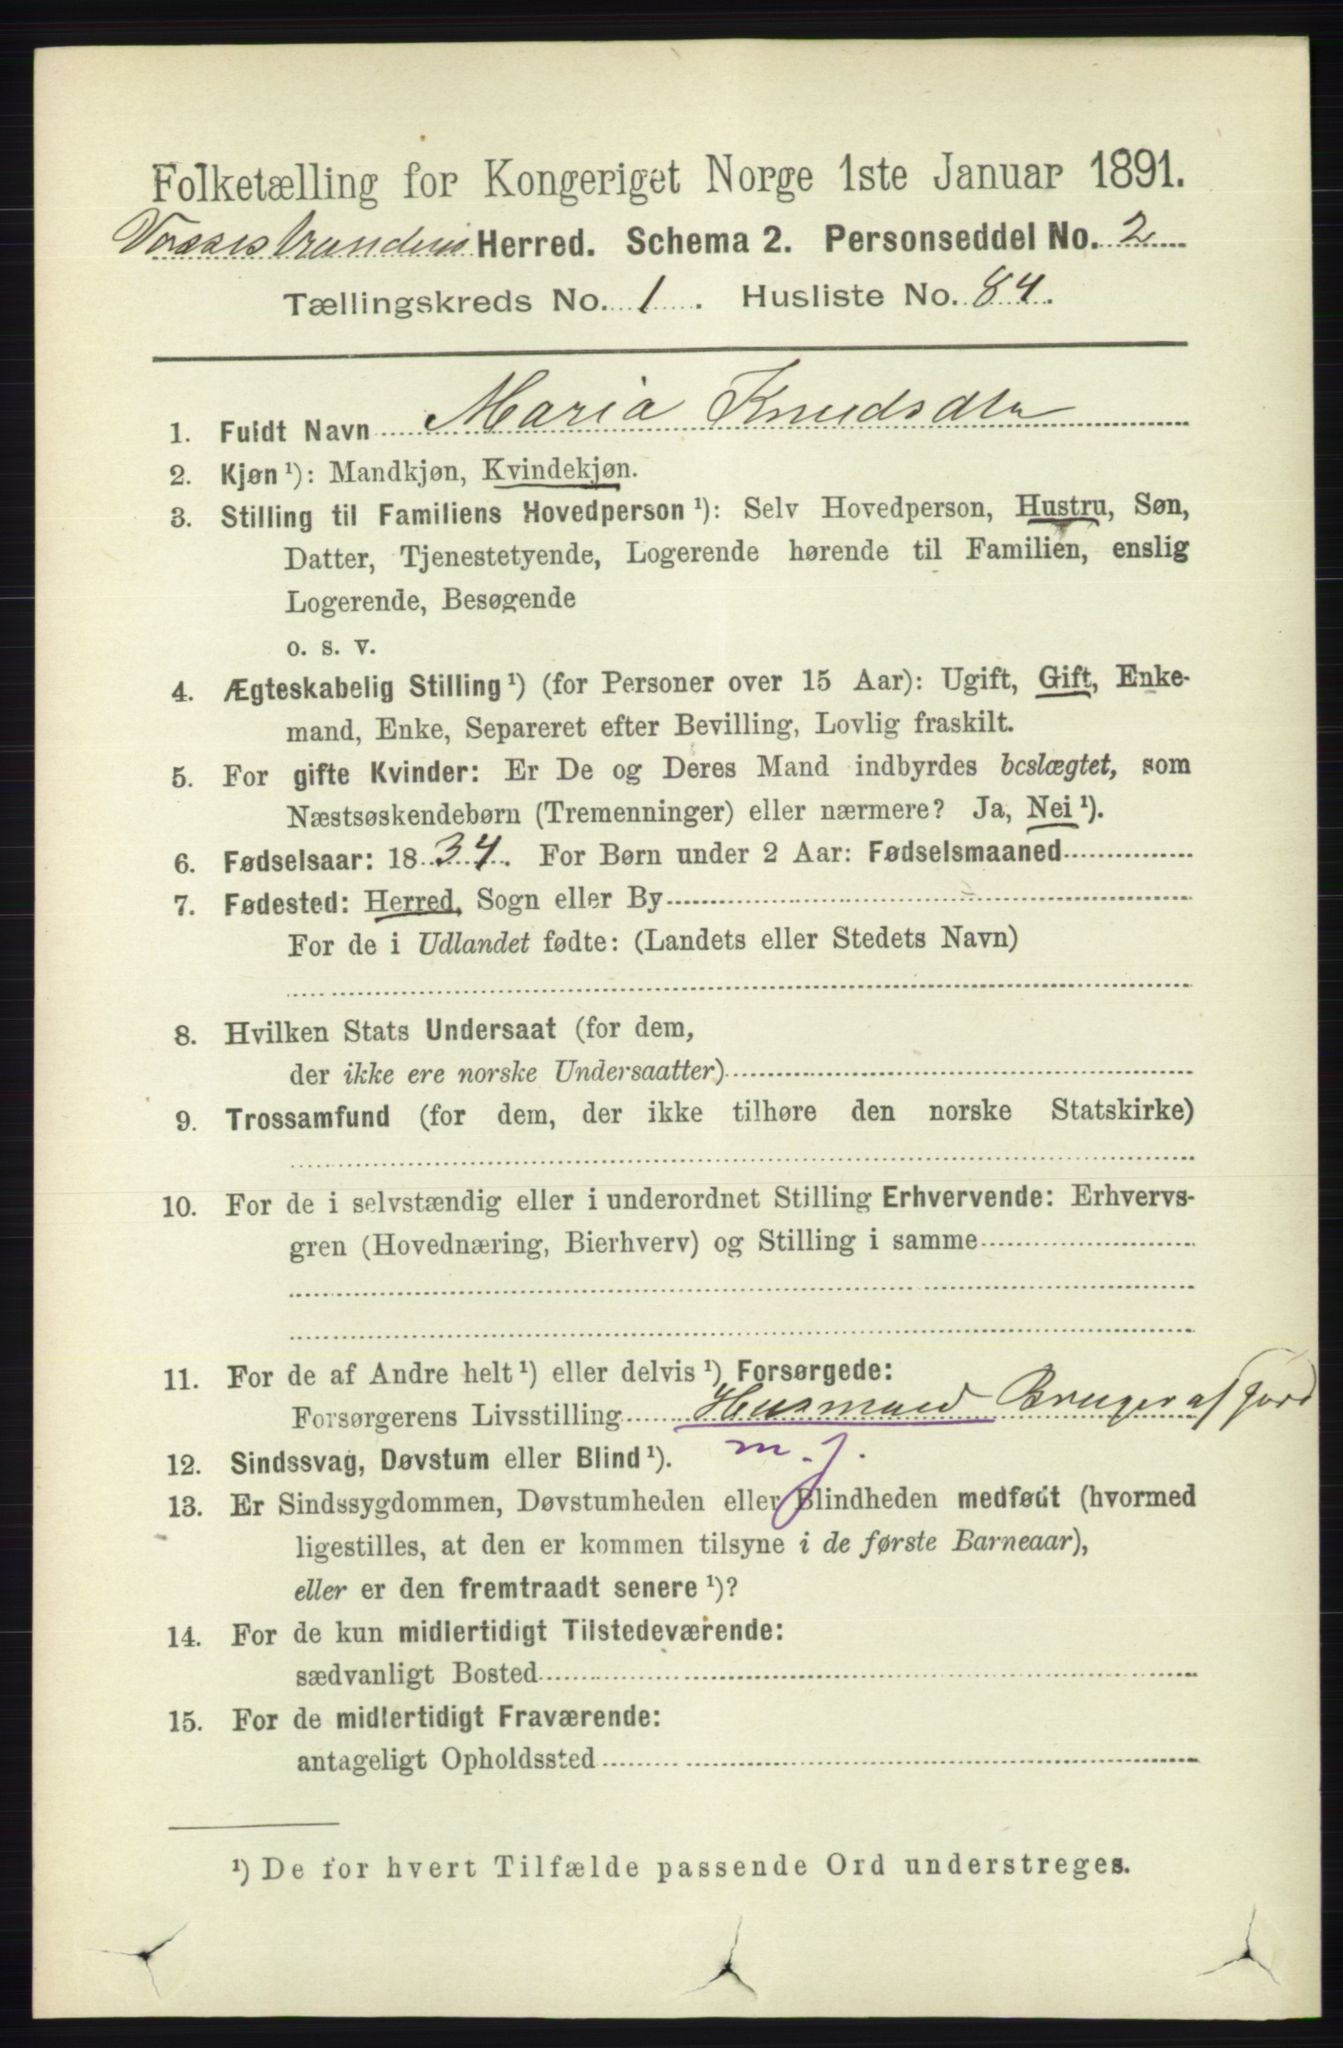 Folketælling for Kongeriget Norge 1ste Januar 1891.
Vossestrandens Herred. Schema 2. Personseddel No. 2
Tællingskreds No. 1. Husliste No. 84.
1. Fuldt Navn Maria Knudsdtr
2. Kjøn ¹): Mandkjøn, Kvindekjøn.
3. Stilling til Familiens Hovedperson ¹): Selv Hovedperson, Hustru, Søn,
Datter, Tjenestetyende, Logerende hørende til Familien, enslig
Logerende, Besøgende
o. s. v.
4. Ægteskabelig Stilling ¹) (for Personer over 15 Aar): Ugift, Gift, Enke-
mand, Enke, Separeret efter Bevilling, Lovlig fraskilt.
5. For gifte Kvinder: Er De og Deres Mand indbyrdes beslægtet, som
Næstsøskendebørn (Tremenninger) eller nærmere? Ja, Nei ¹).
6. Fødselsaar: 1834. For Børn under 2 Aar: Fødselsmaaned
7. Fødested: Herred, Sogn eller By
For de i Udlandet fødte: (Landets eller Stedets Navn)
8. Hvilken Stats Undersaat (for dem,
der ikke ere norske Undersaatter)
9. Trossamfund (for dem, der ikke tilhøre den norske Statskirke)
10. For de i selvstændig eller i underordnet Stilling Erhvervende: Erhvervs-
gren (Hovednæring, Bierhverv) og Stilling i samme
11. For de af Andre helt ¹) eller delvis ¹) Forsørgede:
Forsørgerens Livsstilling Husmand Bruger af Jord
m. j.
12. Sindssvag, Døvstum eller Blind ¹).
13. Er Sindssygdommen, Døvstumheden eller Blindheden medfødt (hvormed
ligestilles, at den er kommen tilsyne i de første Barneaar),
eller er den fremtraadt senere ¹)?
14. For de kun midlertidigt Tilstedeværende:
sædvanligt Bosted
15. For de midlertidigt Fraværende:
antageligt Opholdssted
¹) De for hvert Tilfælde passende Ord understreges.